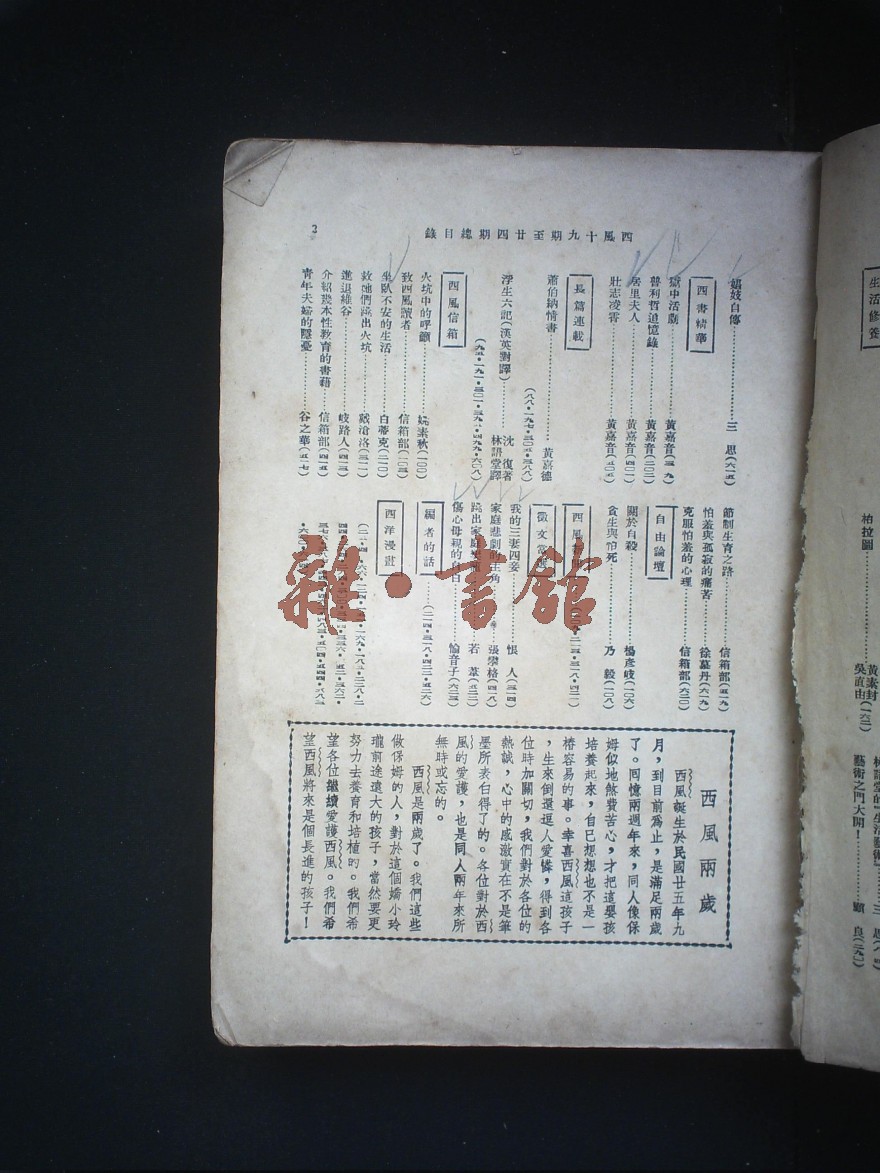 西風十九期至廿四期總目錄
3
娼妓自傳…………三　思(六一五)
西書精華
獄中活劇…………黃嘉音(三九)
普利哲追憶錄…………黃嘉音(二〇二)
居里夫人…………黃嘉音(四〇〇)
壯志凌霄…………黃嘉音(五〇〇)
長篇連載
蕭伯納情書…………黃嘉德
浮生六記(漢英對譯)……沈　復著
林語堂譯
西風信箱
火坑中的呼籲…………
致西風讀者…………信箱部(一〇三)
坐臥不安的生活…………白蒂克(二一〇)
救她們跳出火坑…………戴滄洛(三一一)
進退維谷…………岐路人(四一三)
介紹幾本性教育的書藉……信箱部(四一五)
青年夫婦的隱憂…………谷之華(五一七)
節制生育之路…………信箱部(五一九)
怕羞與孤寂的痛苦………徐慕丹(六一九)
克服怕羞的心理…………信箱部(六二〇)
自由論壇
關於自殺…………楊彥岐(一〇六)
貪生與怕死…………乃　毅(一〇八)
西風
徵文當選
我的三妻四妾…………恨　人(三一四)
家庭悲劇的主角…………張攀格(四一八)
跳出家庭…………若　葦(五二二)
傷心母親的自白…………愉音子(六二三)
編者的話
西洋漫畫
西風兩歲
西風誕生於民國廿五年九
月，到目前為止，是滿足兩歲
了。回憶兩週年來，同人像保
姆似地煞費苦心，才把這嬰孩
培養起來，自己想想也不是一
樁容易的事。幸喜西風這孩子
，生來倒還逗人愛憐，得到各
位時加關切，我們對於各位的
熱誠，心中的感激實在不是筆
墨所表白得了的。各位對於西
風的愛護，也是同人兩年來所
無時或忘的。
西風是兩歲了。我們這些
做保姆的人，對於這個嬌小玲
瓏前途遠大的孩子，當然要更
努力去養育和培植的。我們希
望各位繼續愛護西風。我們希
望西風將來是個長進的孩子！
生活修養
柏拉圖…………黃素封
吳直由(一六二)
林語堂的「生活藝術」……三　思
藝術之門大開！…………顧　良
雜·書館